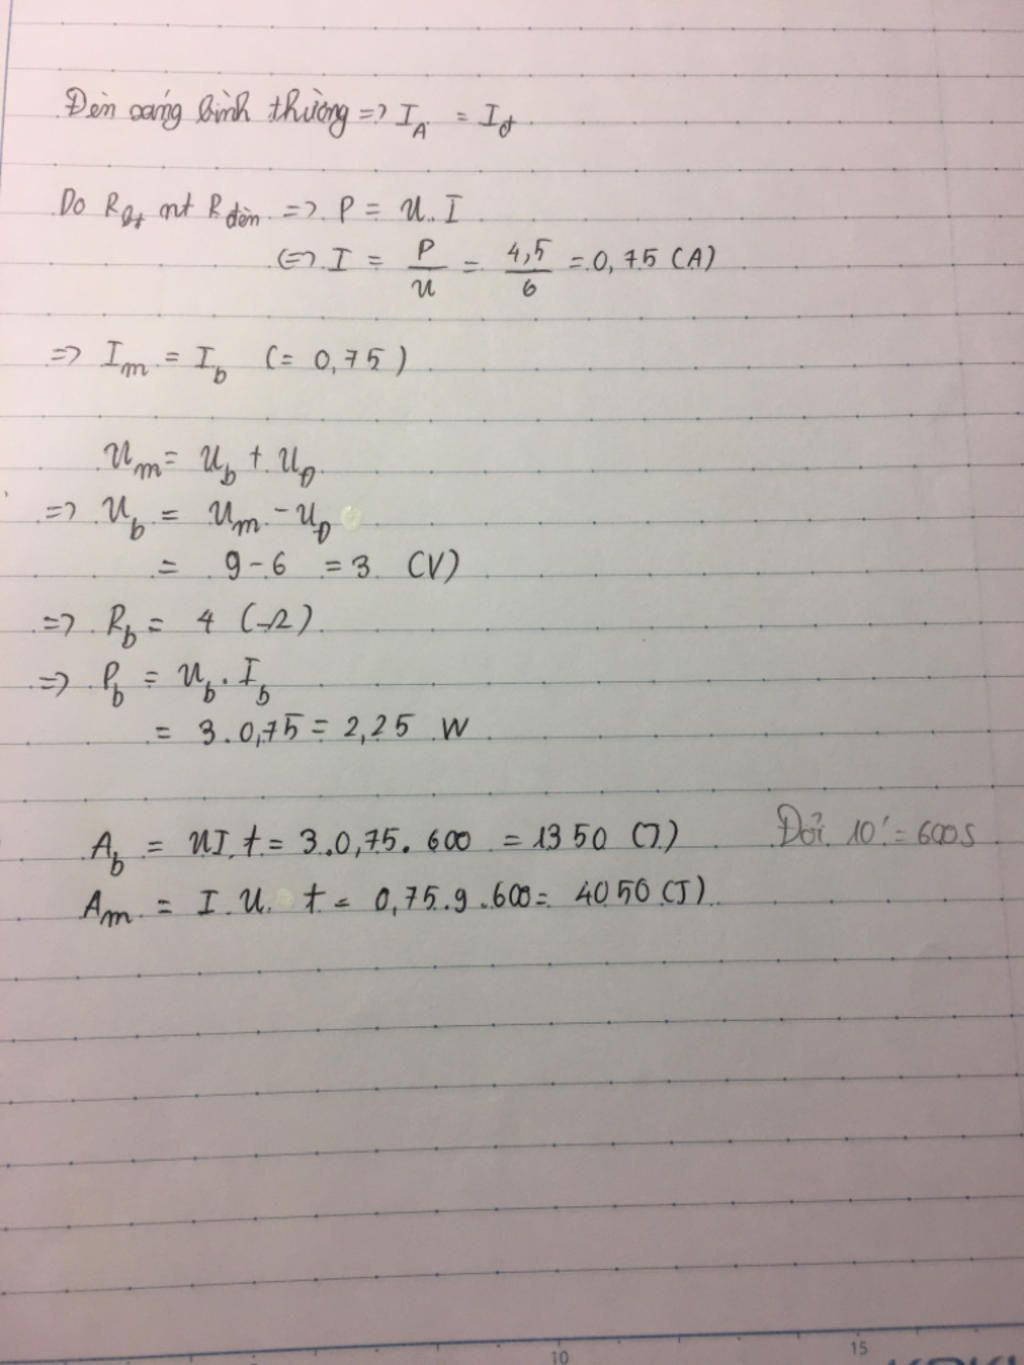 Đèn sáng bình thường => I_A = I_đ
Do R_bt nt R_đèn => P = U.I
<=> I = P/U = 4,5/6 = 0,75 (A)
=> I_m = I_b (= 0,75)
U_m = U_b + U_Đ
=> U_b = U_m - U_Đ
= 9-6 = 3 (V)
=> R_b = 4 (Ω)
=> P_b = U_b . I_b
= 3.0,75 = 2,25 W
A_b = UI.t = 3.0,75.600 = 1350 (J) Đổi 10' = 600s
A_m = I.U.t = 0,75.9.600 = 4050 (J)
10 15